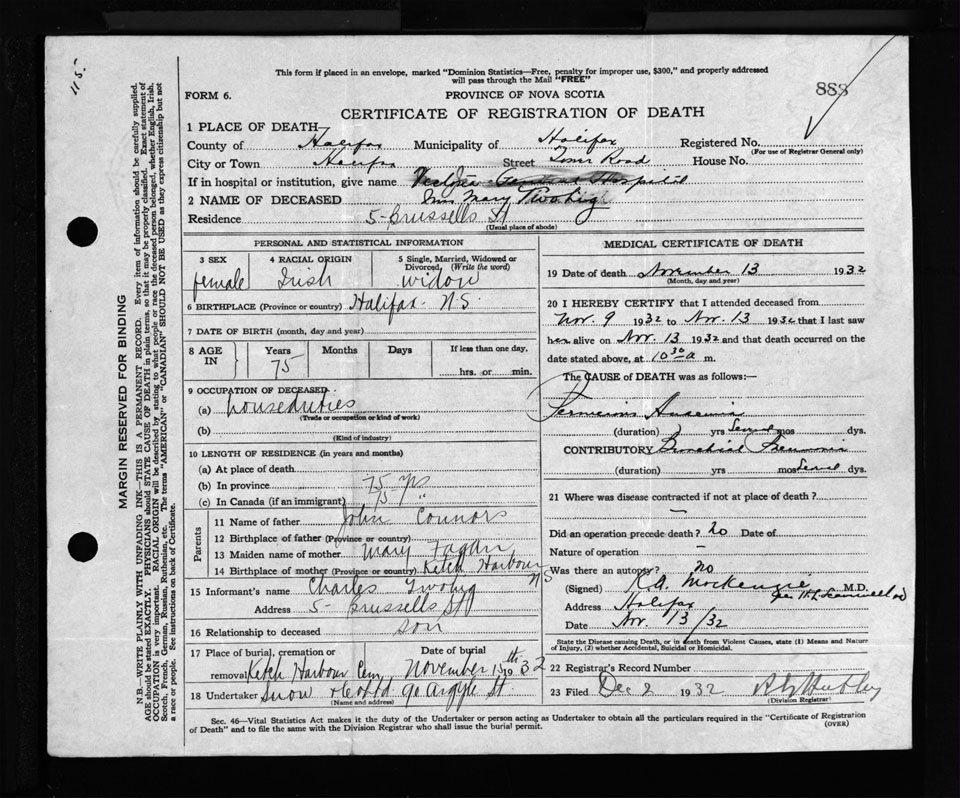 115.
This form if placed in an envelope, marked "Dominion Statistics—Free, penalty for improper use, $300," and properly addressed
will pass through the Mail "FREE"
888
FORM 6.
PROVINCE OF NOVA SCOTIA
CERTIFICATE OF REGISTRATION OF DEATH
1 PLACE OF DEATH
County of Halifax Municipality of Halifax Registered No.
(For use of Registrar General only)
City or Town Halifax Street Tower Road House No.
If in hospital or institution, give name Victoria General Hospital
2 NAME OF DECEASED Mrs Mary Twohig
Residence 5- Brussells St
(Usual place of abode)
PERSONAL AND STATISTICAL INFORMATION
3 SEX female
4 RACIAL ORIGIN Irish
5 Single, Married, Widowed or Divorced, (Write the word) widow
6 BIRTHPLACE (Province or country) Halifax N.S.
7 DATE OF BIRTH (month, day and year)
8 AGE IN Years 75 Months Days If less than one day, hrs. or min.
9 OCCUPATION OF DECEASED
(a) houseduties
(Trade or occupation or kind of work)
(b)
(Kind of industry)
10 LENGTH OF RESIDENCE (in years and months)
(a) At place of death
(b) In province 75 yrs
(c) In Canada (if an immigrant) 75 "
Parents
11 Name of father John Connors
12 Birthplace of father (Province or country)
13 Maiden name of mother Mary Fagan
14 Birthplace of mother (Province or country) Ketch Harbour NS
15 Informant's name Charles Twohig
Address 5- Brussells St
16 Relationship to deceased son
17 Place of burial, cremation or removal Ketch Harbour Cem, Date of burial November 15th 1932
18 Undertaker Snow & Co Ltd 90 Argyle St.
(Name and address)
MEDICAL CERTIFICATE OF DEATH
19 Date of death November 13 1932
(Month, day and year)
20 I HEREBY CERTIFY that I attended deceased from
Nov. 9 1932 to Nov. 13 1932 that I last saw
her alive on Nov. 13 1932 and that death occurred on the
date stated above, at 10 30 a m.
The CAUSE OF DEATH was as follows:—
Pernicious Anaemia
(duration) yrs mos dys.
CONTRIBUTORY Bronchial Pneumonia
(duration) yrs mos dys.
21 Where was disease contracted if not at place of death?
—
Did an operation precede death? no Date of
Nature of operation —
Was there an autopsy? no
(Signed) K.A. MacKenzie M.D.
per
Address Halifax
Date Nov. 13/32
State the Disease causing Death, or in death from Violent Causes, state (1) Means and Nature
of Injury, (2) whether Accidental, Suicidal or Homicidal.
22 Registrar's Record Number
23 Filed Dec 2 1932
(Division Registrar)
Sec. 46—Vital Statistics Act makes it the duty of the Undertaker or person acting as Undertaker to obtain all the particulars required in the "Certificate of Registration
of Death" and to file the same with the Division Registrar who shall issue the burial permit.
(OVER)
MARGIN RESERVED FOR BINDING
N.B.—WRITE PLAINLY WITH UNFADING INK—THIS IS A PERMANENT RECORD. Every item of information should be carefully supplied.
AGE should be stated EXACTLY. PHYSICIANS should STATE CAUSE OF DEATH in plain terms, so that it may be properly classified. Exact statement of
OCCUPATION is very important. RACIAL ORIGIN will be described by stating to what people or race the deceased person belonged, whether English, Irish,
Scotch, French, German, Russian, Ruthenian, etc. The terms "AMERICAN" or "CANADIAN" SHOULD NOT BE USED as they express citizenship but not
a race or people. See instructions on back of Certificate.